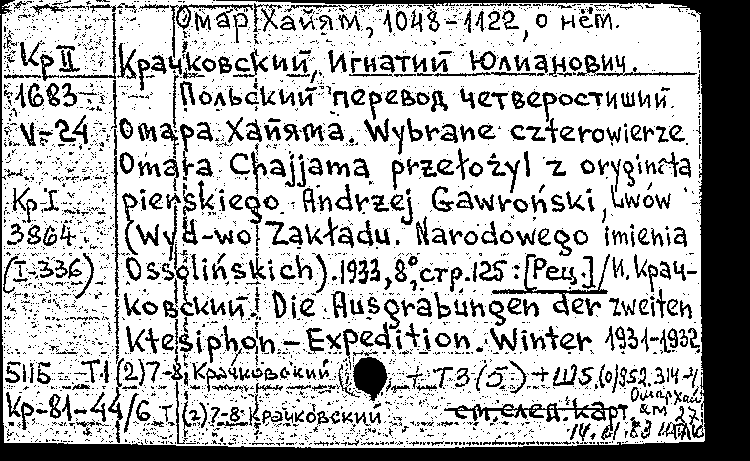 Омар Хайям, 1048-1122, о нём.
Кр II Крачковский, Игнатий Юлианович.
1683. Польский перевод четверостиший
V-24 Омара Хайяма. Wybrane czterowierze
Omara Chajjama przełożył z oryginała
Кр I pierskiego Andrzej Gawroński, Lwów
3864. (Wyd-wo Zakładu. Narodowego imienia
(I-336) Ossolińskich). 1933, 8°, стр. 125: [Рец.] / И. Крач-
ковский. Die Ausgrabungen der zweiten
Ktesiphon-Expedition. Winter 1931-1932
5115 Т1 (2)7-8; Крачковский + Т3(5) + Ш5.(0)952.314-4
Кр-81-44/6 Т (2)7-8 Крачковский см след. карт. Омар Хай
14.01.83